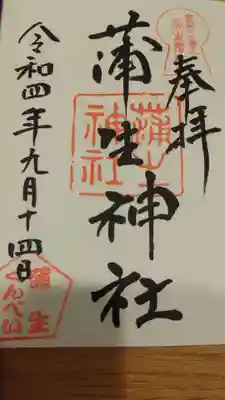 奉拝
蒲生神社
蒲生神社
令和四年九月十四日
蒲生
くんぺい